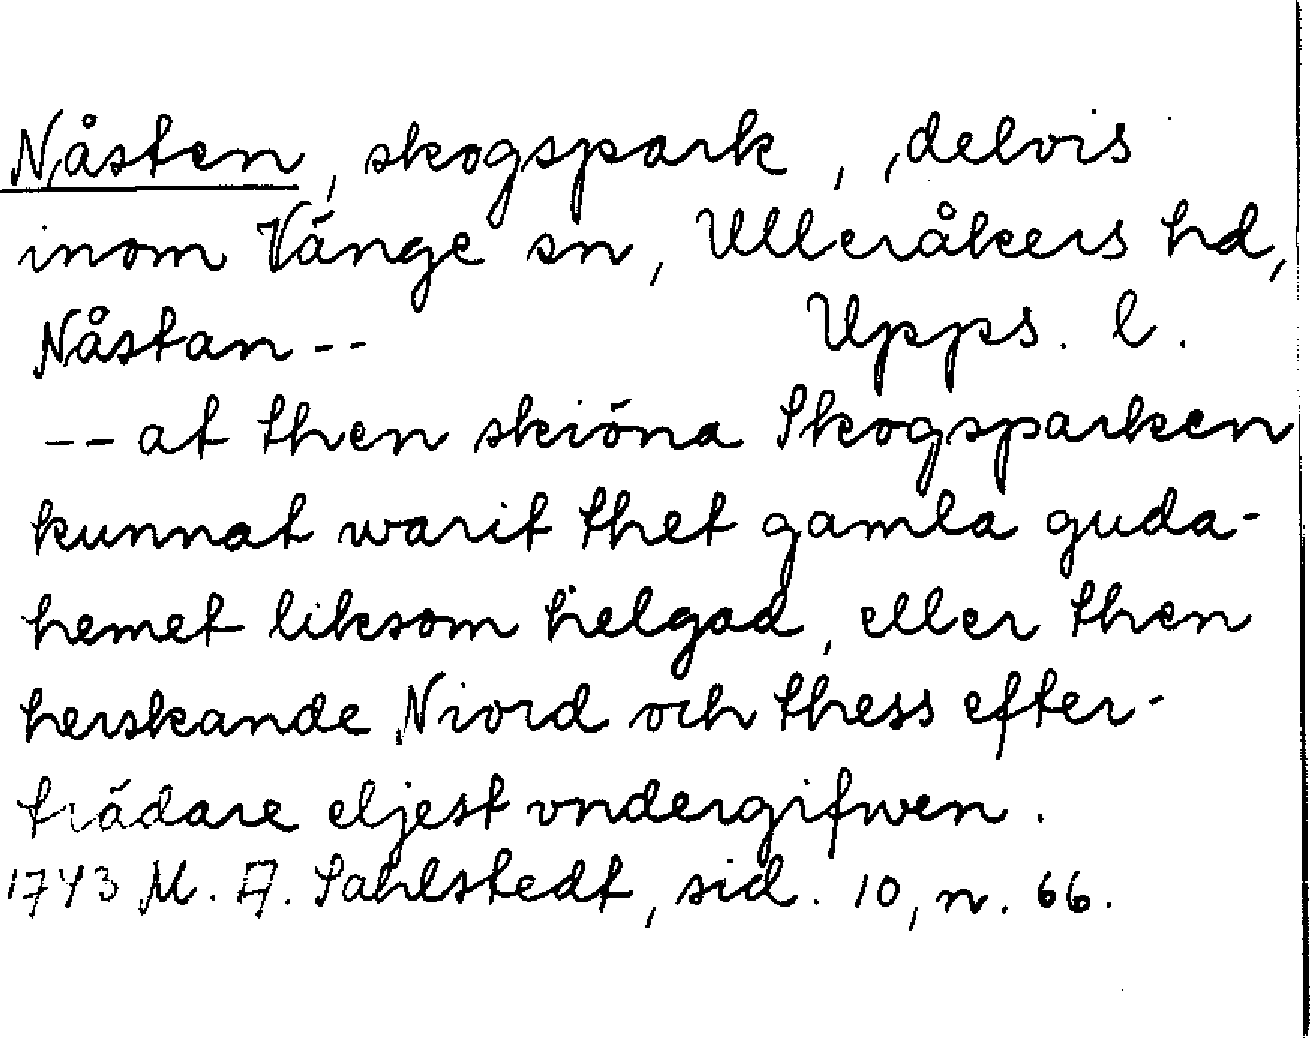 Nåsten, skogspark, delvis
inom Vänge sn, Ulleråkers hd,
Nåstan -- Upps. l.
-- at then skiöna Skogsparken
kunnat warit thet gamla guda-
hemet liksom helgad, eller then
herskande Niord och thess efter-
trädare eljest vndergifwen.
1743 M. A. Sahlstedt, sid. 10, n. 66.